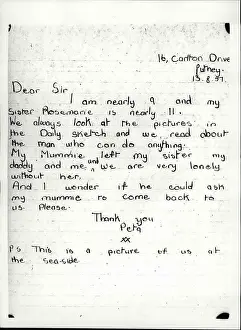 16, Carlton Drive
Putney.
13.8.37.
Dear Sir
I am nearly 9 and my
Sister Rosemarie is nearly 11.
We always look at the pictures in
the Daily Sketch and we read about
the man who can do anything.
My Mummie left my sister my
daddy and me, and we are very lonely
without her.
And I wonder if he could ask
my mummie to come back to
us Please.
Thank you
Peta
xx
PS This is a picture of us at
the sea-side